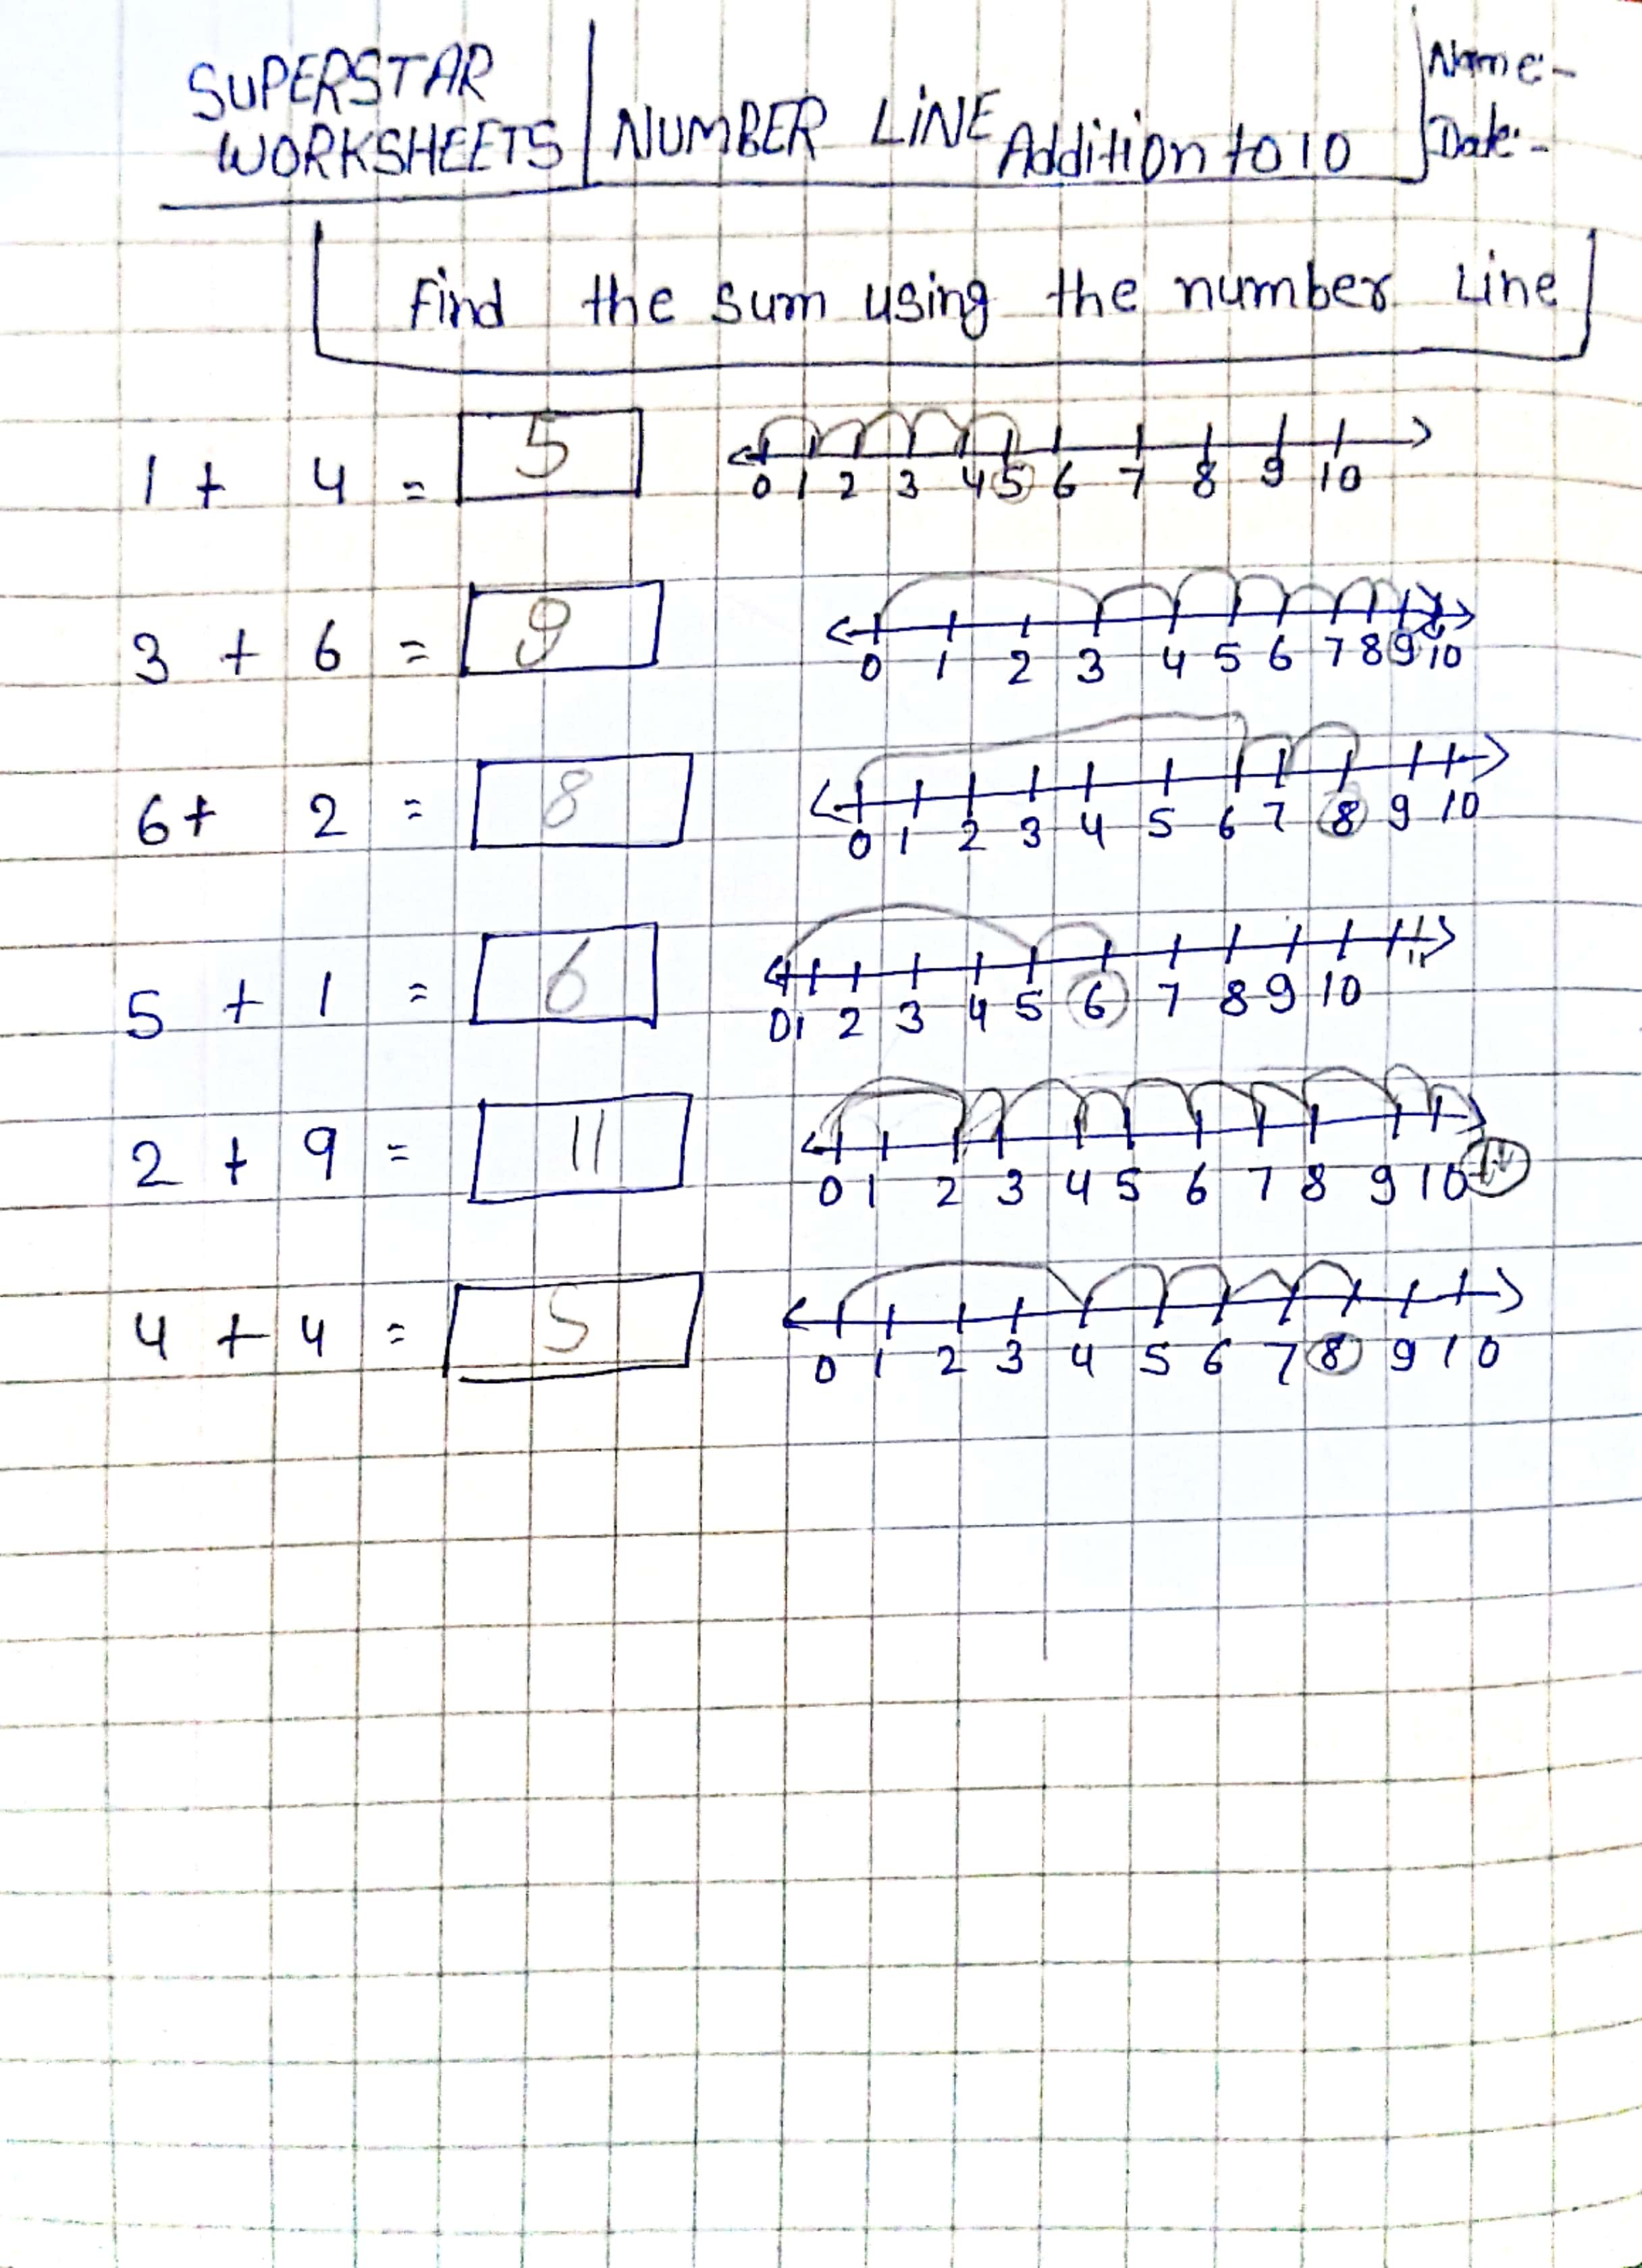 SUPERSTAR WORKSHEETS
NUMBER LINE Addition to 10
Name-
Date-
Find the sum using the number Line
1 + 4 = 5
0 1 2 3 4 5 6 7 8 9 10
3 + 6 = 9
0 1 2 3 4 5 6 7 8 9 10
6 + 2 = 8
0 1 2 3 4 5 6 7 8 9 10
5 + 1 = 6
0 1 2 3 4 5 6 7 8 9 10
2 + 9 = 11
0 1 2 3 4 5 6 7 8 9 10 11
4 + 4 = 5
0 1 2 3 4 5 6 7 8 9 10